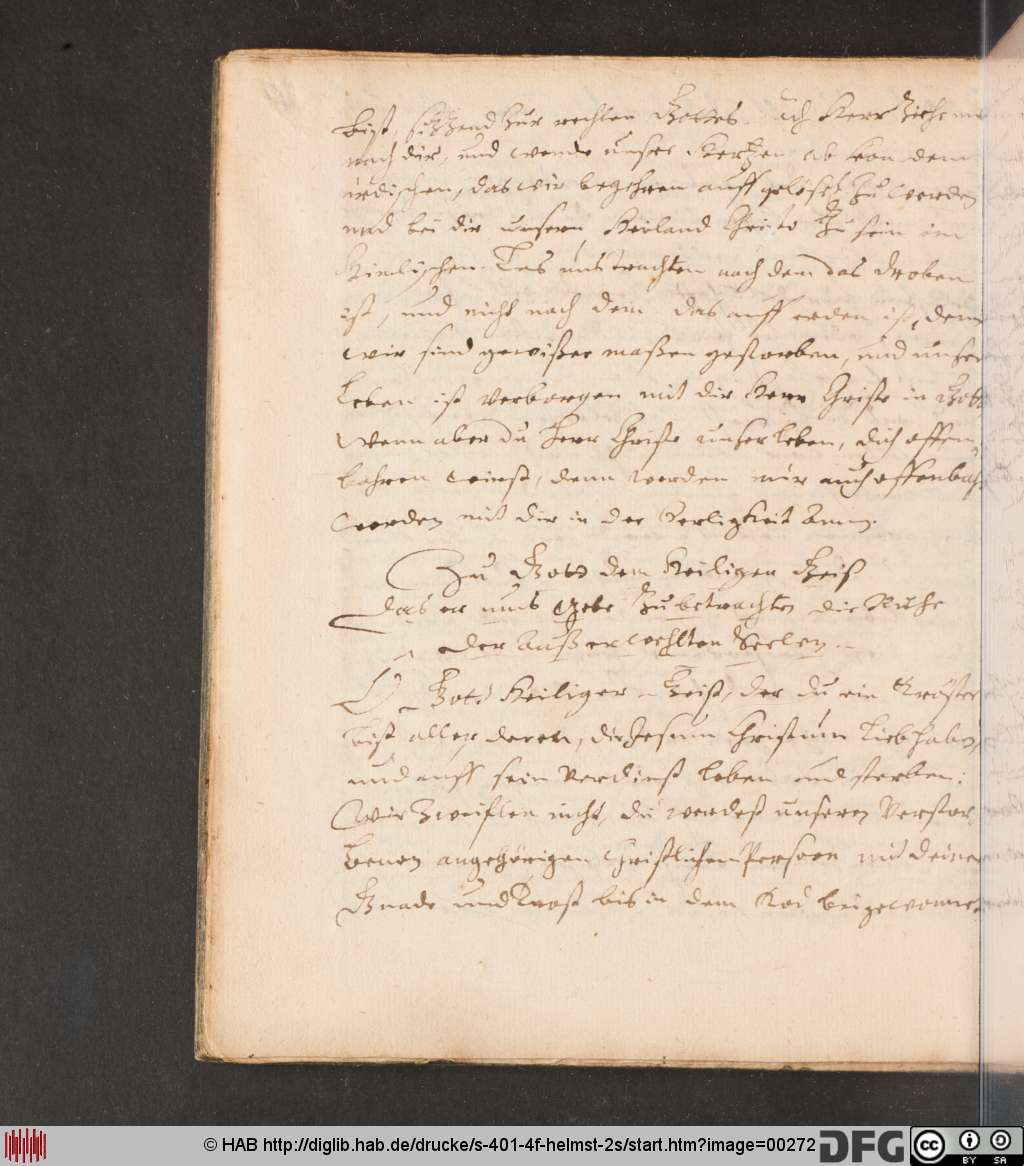 bist, sitzend zur rechten Gottes. Ach Herr ziehe
nach dir, und wende unser Hertzen ab von dem
irdischen, das wir begehren auffgelöset zu werden
und bei dir unserm Heiland Christo zu sein im
Himlischen. Las uns trachten nach dem das droben
ist, und nicht nach dem das auff erden ist, denn
wir sind gewißer maßen gestorben, und unser
Leben ist verborgen mit dir Herr Christe in Gott
Wenn aber du Herr Christe unser leben, dich offen,
bahren wirst, denn werden wir auch offenbahr
werden mit dir in der Seeligkeit Amen.
Zu Gott dem Heiligen Geist
das er uns gebe zu betrachten die Ruhe
der Außerwehlten Seelen.
O Gott Heiliger Geist, der du ein Tröster
bist aller deren, die Jesum Christum Lieb haben,
und auff sein verdienst leben und sterben:
Wir zweiflen nicht, du werdest unseren verstor,
benen angehörigen Christlichen Person mit deiner
Gnade und Trost bis in dem Tod beigewonet
© HAB http://diglib.hab.de/drucke/s-401-4f-helmst-2s/start.htm?image=00272
DFG
cc BY SA